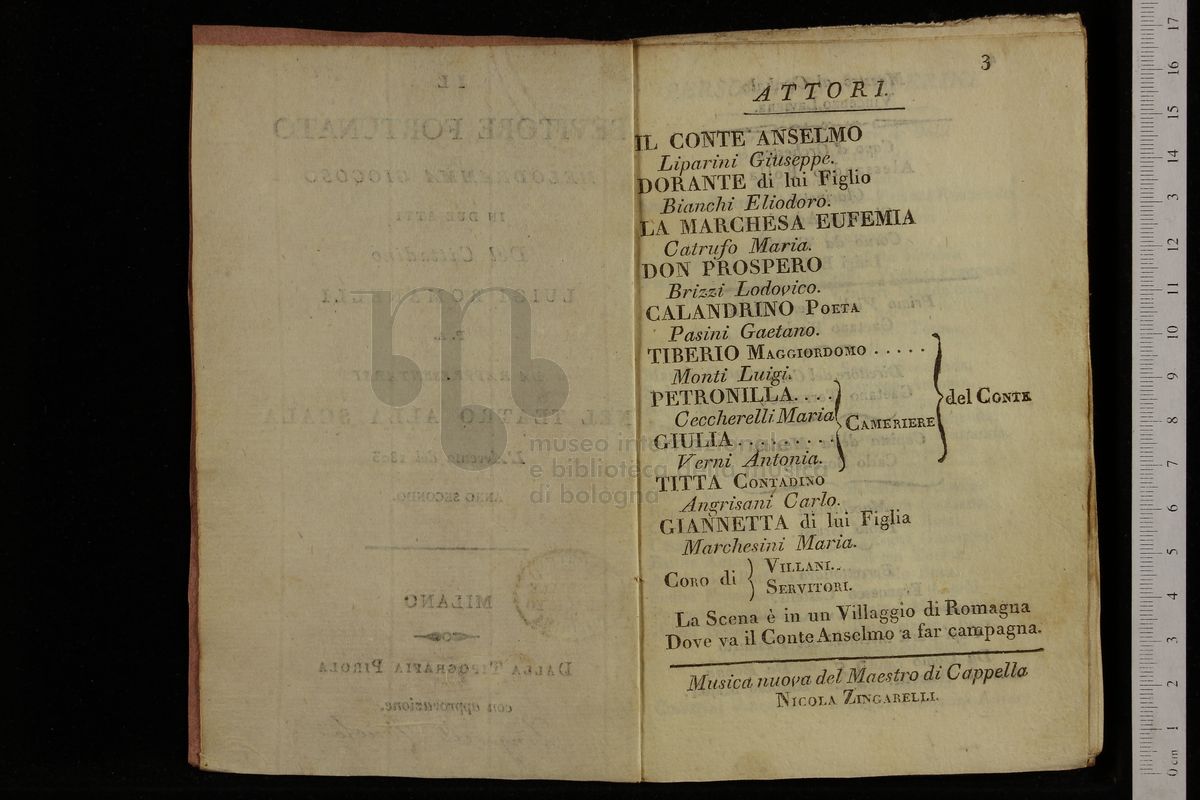 3
ATTORI.
IL CONTE ANSELMO
Liparini Giuseppe.
DORANTE di lui Figlio
Bianchi Eliodoro.
LA MARCHESA EUFEMIA
Catrufo Maria.
DON PROSPERO
Brizzi Lodovico.
CALANDRINO POETA
Pasini Gaetano.
TIBERIO MAGGIORDOMO . . . . .
Monti Luigi.
PETRONILLA. . . .
del CONTE
Ceccherelli Maria
CAMERIERE
GIULIA . . . . . . . .
Verni Antonia.
TITTA CONTADINO
Angrisani Carlo.
GIANNETTA di lui Figlia
Marchesini Maria.
CORO di
VILLANI..
SERVITORI.
La Scena è in un Villaggio di Romagna
Dove va il Conte Anselmo a far campagna.
Musica nuova del Maestro di Cappella
NICOLA ZINGARELLI.
museo internazionale
e biblioteca della musica
di bologna
17
16
15
14
13
12
11
10
9
8
7
6
5
4
3
2
1
0 cm